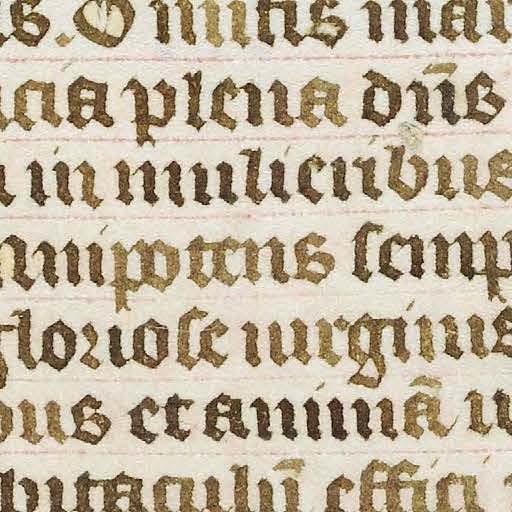 s. Omnis mar
cia plena dn̄s
in mulieribus
omnipotens semp
gloriose uirginis
pus et animā
bitaculū effici